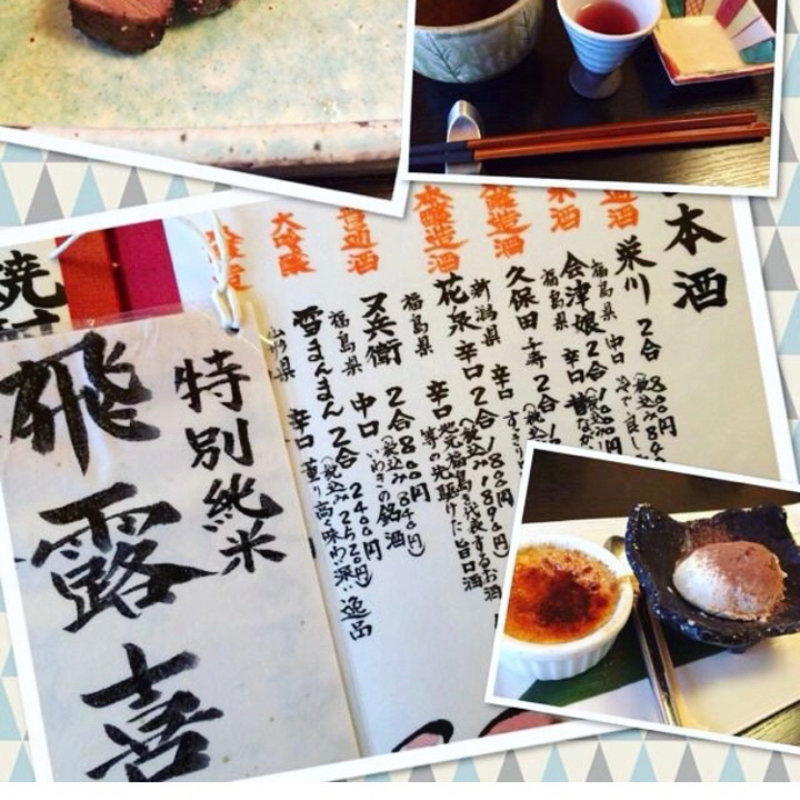 本酒
造酒
栄川 2合 800円
福島県 中口
冷で良し
酒
会津娘 2合
福島県 辛口
醸造酒
久保田 千寿 2合
新潟県 辛口
本醸造酒
花泉 辛口 2合 1800円
(税込み1890円)
福島県 辛口 地元福島を代表するお酒
等の先駆けた旨口酒
普通酒
又兵衛 2合 800円
(税込み840円)
福島県 中口 いわきの銘酒
大吟醸
雪まんまん 2合 2400円
(税込み2520円)
山形県 辛口 薫り高く味わい深い逸品
特別純米
飛露喜
焼